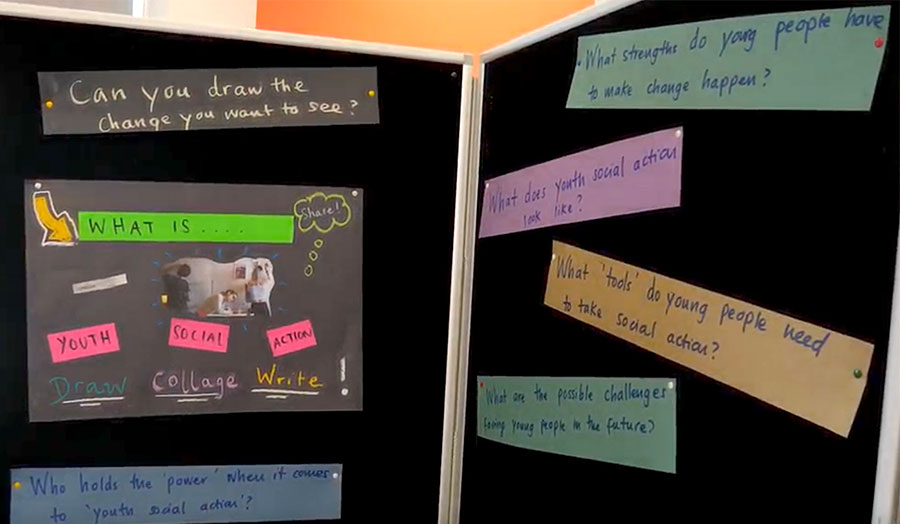 Can you draw the
change you want to see?
WHAT IS....
Share!
YOUTH
SOCIAL
ACTION
Draw
Collage
Write
!
Who holds the 'power' when it comes
to 'youth social action'?
What strengths do young people have
to make change happen?
What does youth social action
look like?
What 'tools' do young people need
to take social action?
What are the possible challenges
facing young people in the future?